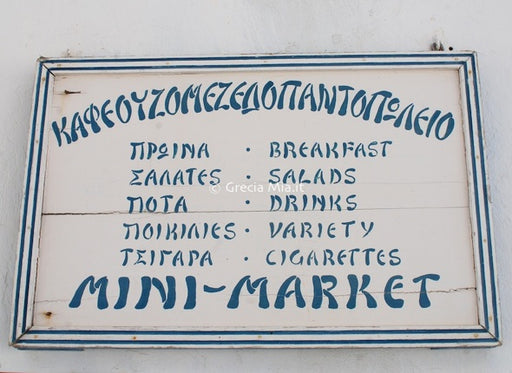 ΚΑΦΕΟΥΖΟΜΕΖΕΔΟΠΑΝΤΟΠΩΛΕΙΟ
ΠΡΩΙΝΑ · BREAKFAST
ΣΑΛΑΤΕΣ · SALADS
© Grecia Mia.it
ΠΟΤΑ · DRINKS
ΠΟΙΚΙΛΙΕΣ · VARIETY
ΤΣΙΓΑΡΑ · CIGARETTES
MINI-MARKET